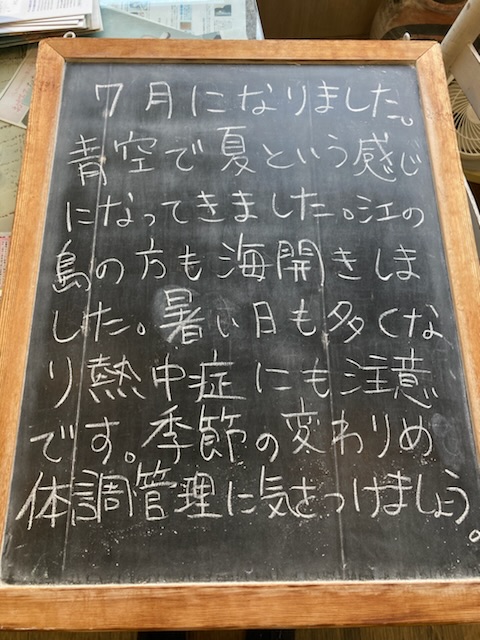 7月になりました。
青空で夏という感じ
になってきました。江の
島の方も海開きしま
した。暑い日も多くな
り熱中症にも注意
です。季節の変わりめ
体調管理に気をつけましょう。